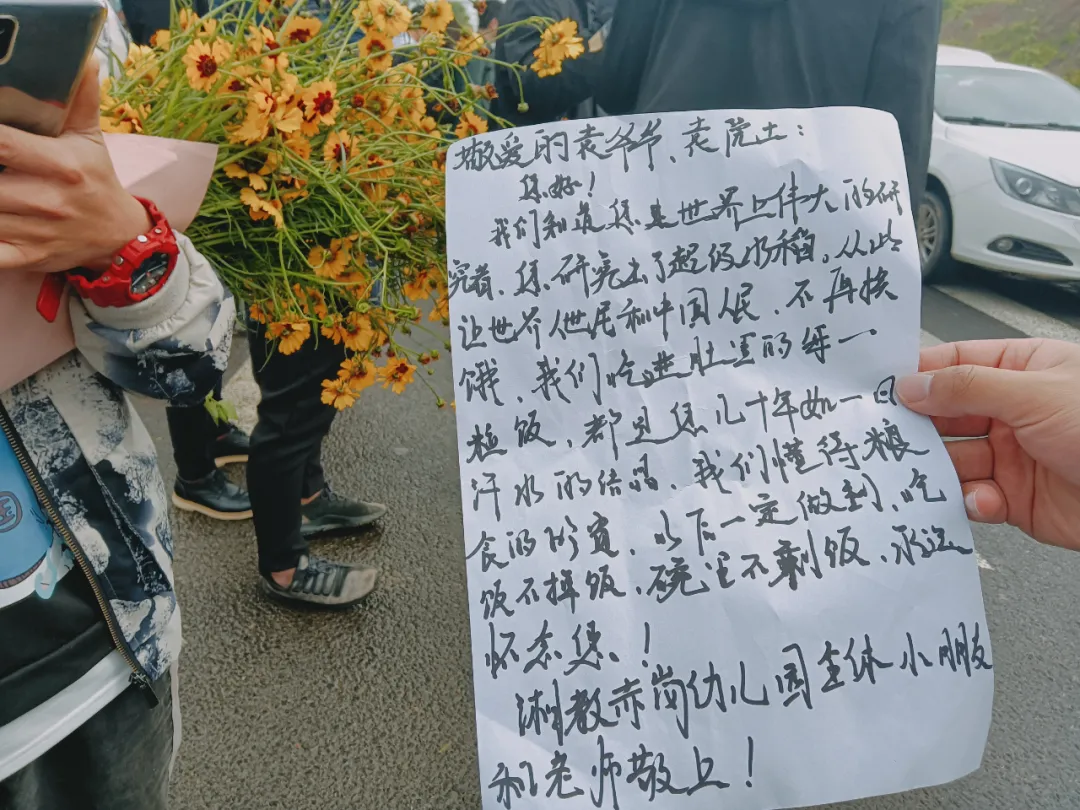 敬爱的袁爷爷、袁院士：
您好！
我们知道您是世界上伟大的研
究者、您研究出了超级水稻。从此
让世界人民和中国人民、不再挨
饿、我们吃进肚里的每一
粒饭、都是您几十年如一日
汗水的结晶、我们懂得粮
食的珍贵、以后一定做到、吃
饭不掉饭、碗里不剩饭、永远
怀念您、！
湘教赤岗幼儿园全体小朋友
和老师敬上！